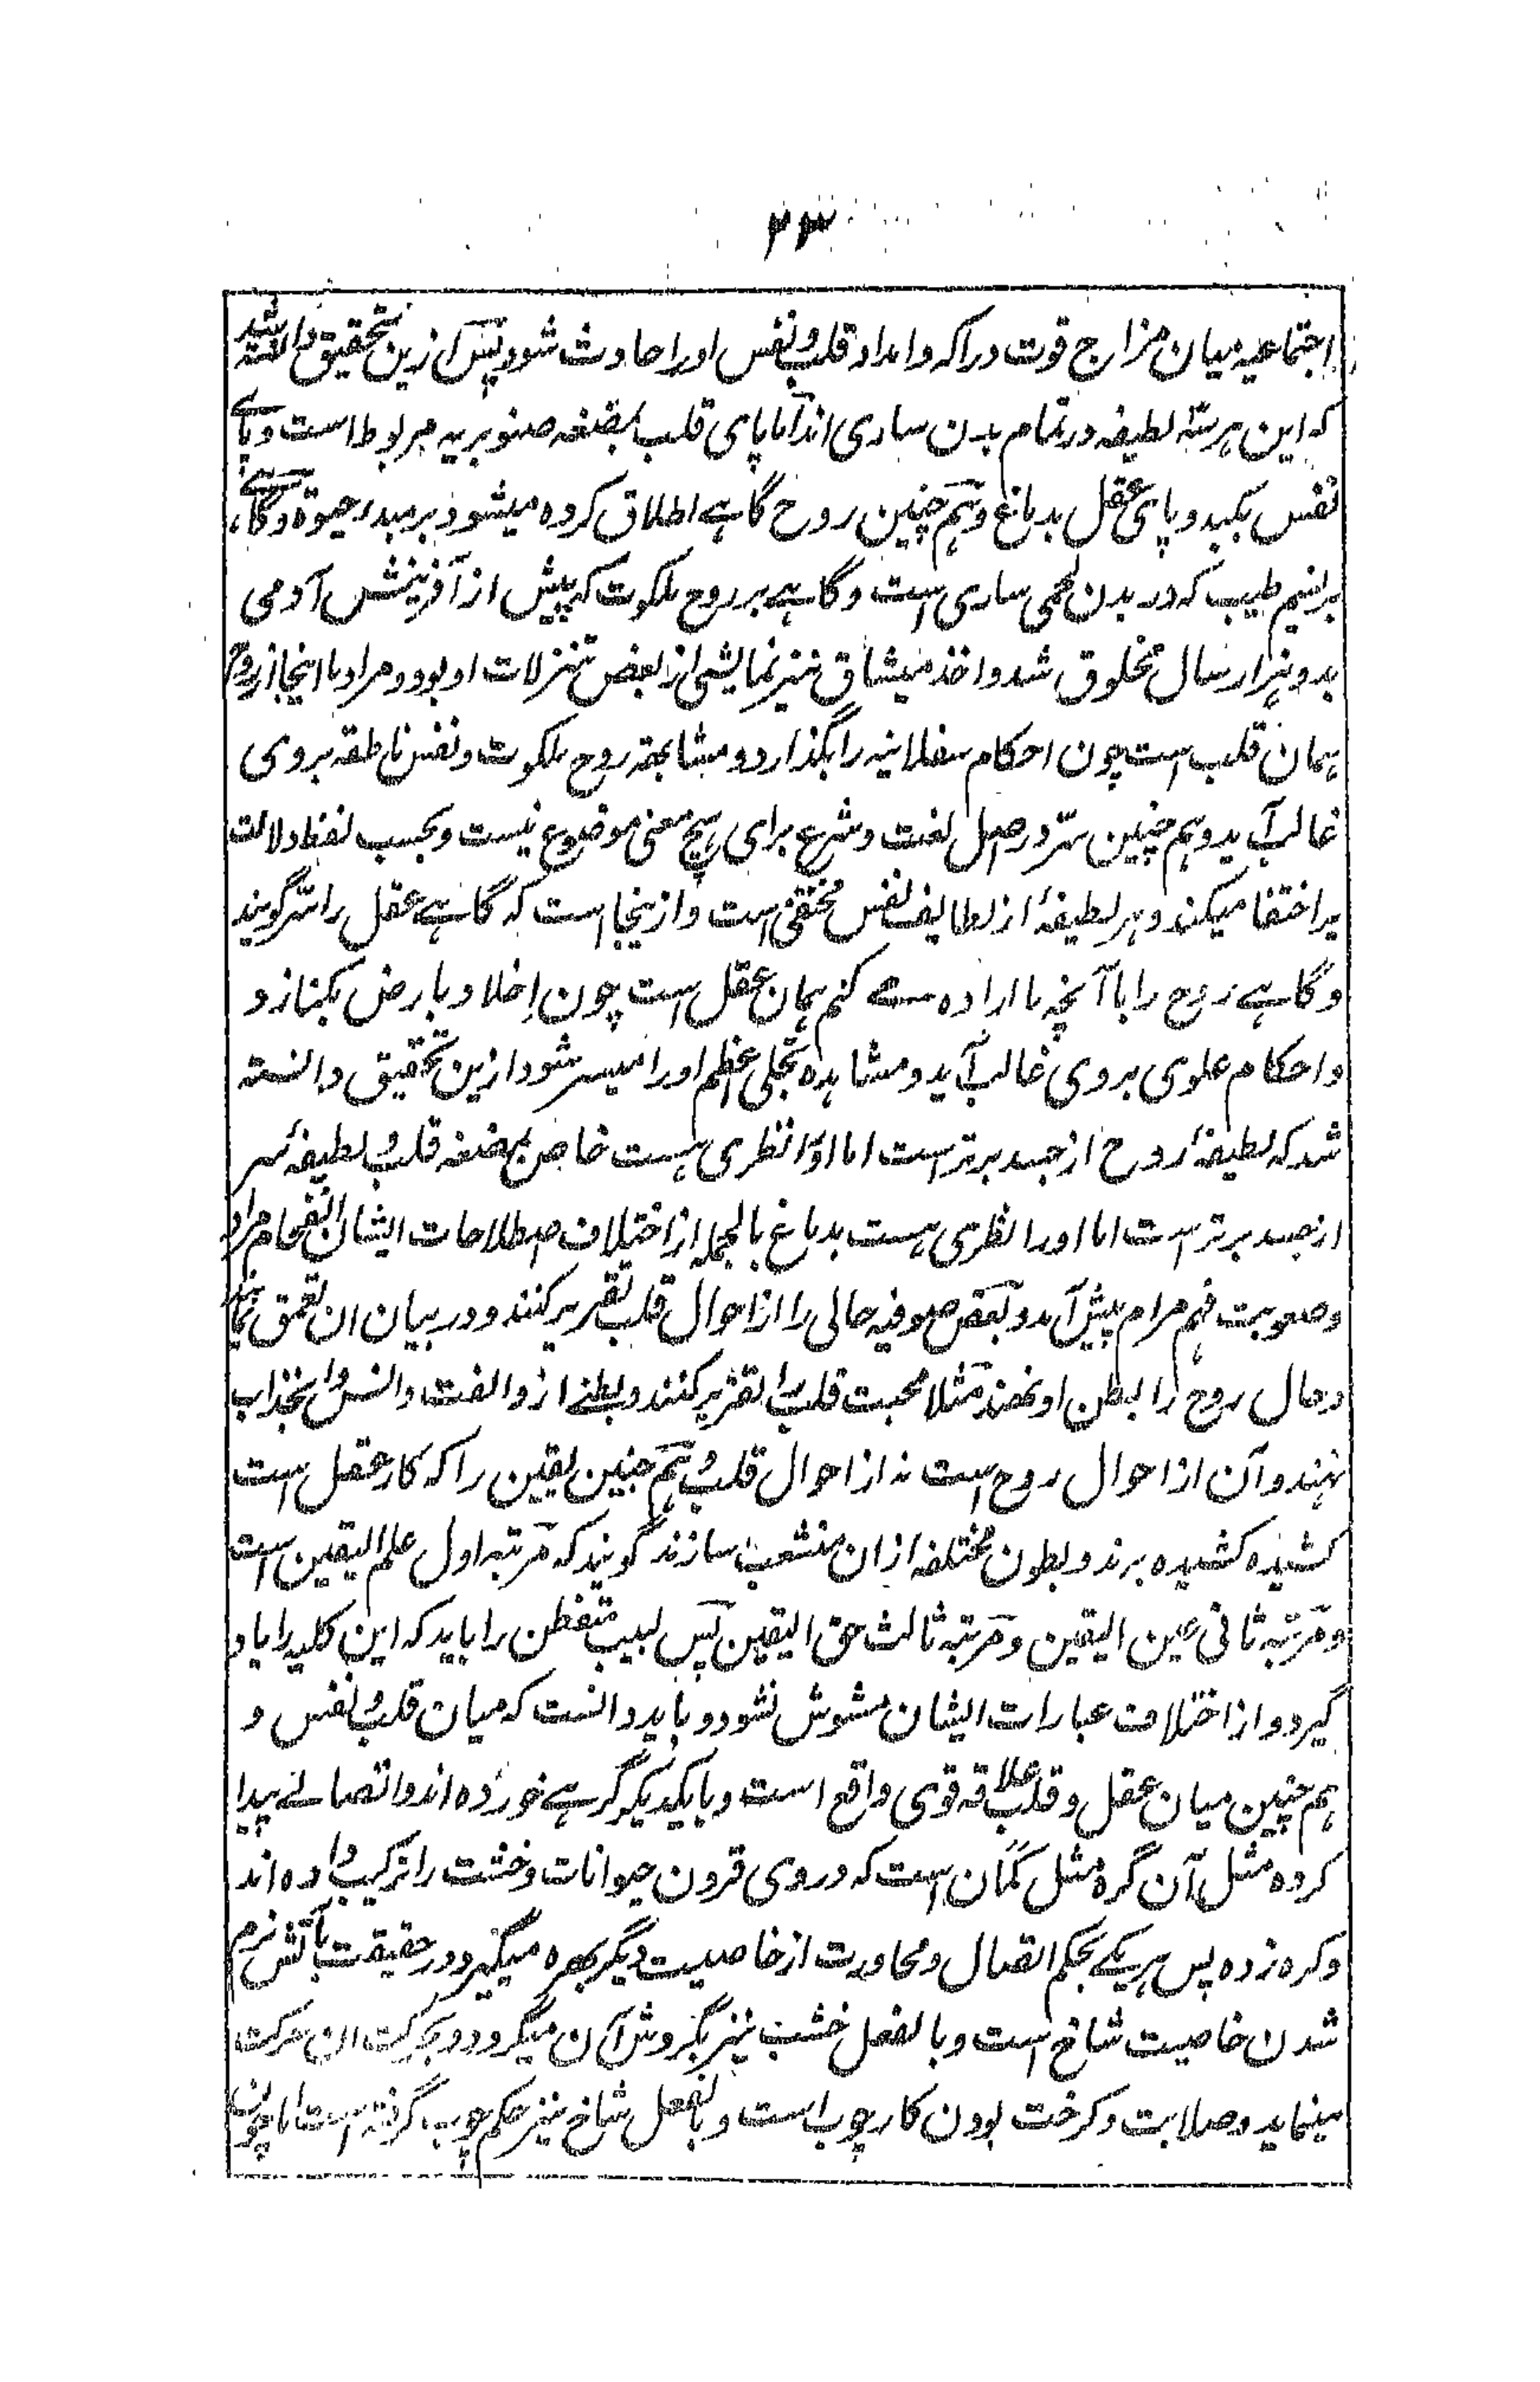 ۲۳
اجتماعیه میان مزاج قوت دراکه و امداد قلب و نفس اورا حادث شود پس ازین تحقیق دانسته شد
که این هر سه لطیفه در تمام بدن ساری اند اما پای قلب بمضغه صنوبریه مربوط است و پای
نفس بکبد و پای عقل بدماغ و هم چنین روح گاہے اطلاق کرده میشود بر مبدء حیوة و گاہے
برنسیم طیب که در بدن لحمی ساری است و گاہے بر روح ملکوت که پیش از آفرینش آدمی
بدو هزار سال مخلوق شد و اخذ میثاق نیز نمایشی از بعض تنزلات او بود و مراد ما اینجا از روح
همان قلب است چون احکام سفلانیه را بگذارد و مشابهت روح ملکوت و نفس ناطقه بر وی
غالب آید و هم چنین سر در اصل لغت و شرع برای هیچ معنی موضوع نیست و بحسب لفظ دلالت
بر اختفا میکند و هر لطیفهٔ از لطایف نفس مختفی است و از ینجا است که گاہے عقل را سر گویند
و گاہے روح را با آنچه ما اراده مے کنم همان عقل است چون اخلاد بارض بکنازد
و احکام علوی بروی غالب آید و مشاهده تجلی اعظم اورا میسر شود ازین تحقیق دانسته
شد که لطیفهٔ روح از جسد برتر است اما اورا نظری هست خاص بمضغه قلب و لطیفهٔ سر
از جسد برتر است اما اورا نظری هست بدماغ بالجمله از اختلاف اصطلاحات ایشان مرام
وصعوبت فهم مرام پیش آمد و بعض صوفیه حالی را از احوال قلب تقریر کنند و در بیان ان تعمق نمایند
و حال روح را بطن او نهند مثلا محبت قلب را تقریر کنند و بطنے ازو الفت و انس و انجذاب
نهند و آن از احوال روح است نه از احوال قلب و هم چنین یقین را که کار عقل است
کشیده کشیده برند و بطون مختلفه ازان منشعب سازند گویند که مرتبه اول علم الیقین است
و مرتبه ثانی عین الیقین و مرتبه ثالث حق الیقین پس لبیب متفطن را باید که این کلیه را یاد
گیرد و از اختلاف عبارات ایشان مشوش نشود و باید دانست که میان قلب و نفس و
هم چنین میان عقل و قلب علاقه قوی واقع است و با یکدیگر گرہے خورده اند و اتصالے پیدا
کرده مثل آن گره مثل کمان است که در وی قرون حیوانات و خشت را ترکیب داده اند
و کره زده پس هر یکے بحکم اتصال و مجاورت از خاصیت دیگر بهره میگیرد و در حقیقت باتش نرم
شدن خاصیت شاخ است و بالفعل خشب نیز بگردش آن میگردد و بحرکت ان حرکت
مینماید و صلابت و کرخت بودن کار چوب است و بالفعل شاخ نیز حکم چوب گرفته است اما چون